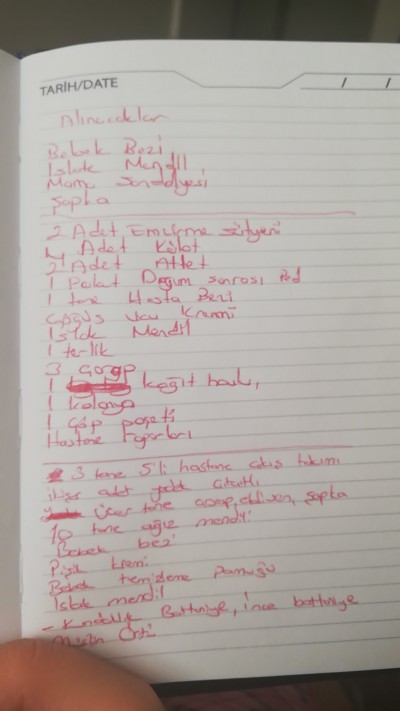 TARİH/DATE
/ /
Alınacaklar
Bebek Bezi
Islak Mendil
Mama Sandalyesi
Şapka
2 Adet Emzirme sütyeni
4 Adet Külot
2 Adet Atlet
1 Paket Doğum sonrası Ped
1 tane Hasta Bezi
Göğüs Ucu Kremi
Islak Mendil
1 terlik
3 Çorap
1 kağıt havlu,
1 Kolonya
1 Çöp poşeti
Hastane
3 tane 5'li hastane çıkış takımı
ikişer adet yedek
üçer tane çorap, eldiven, şapka
10 tane ağız mendili
Bebek bezi
Pişik kremi
Bebek temizleme pamuğu
Islak mendil
- Battaniye, ince battaniye
Müslin Örtü